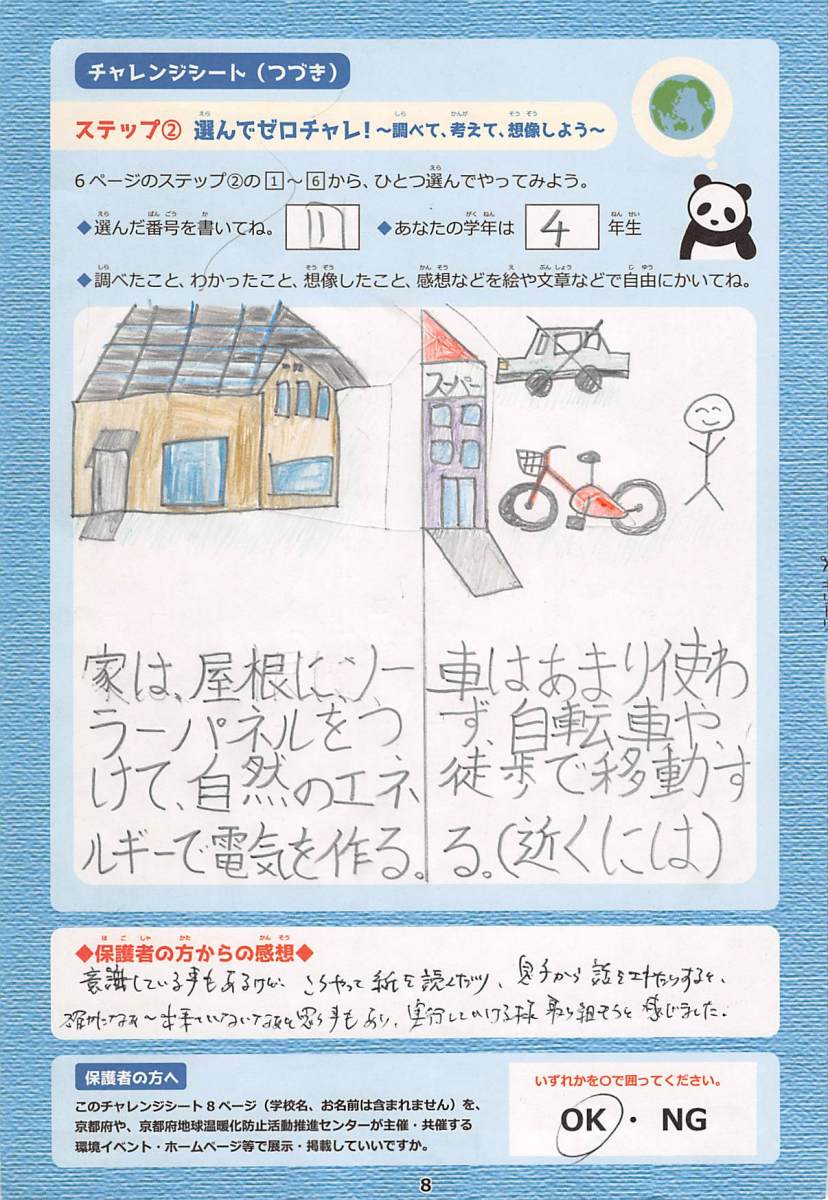 チャレンジシート（つづき）
ステップ② 選んでゼロチャレ！～調べて、考えて、想像しよう～
6ページのステップ②の1～6から、ひとつ選んでやってみよう。
◆選んだ番号を書いてね。 ◆あなたの学年は 4 年生
◆調べたこと、わかったこと、想像したこと、感想などを絵や文章などで自由にかいてね。
スーパー
家は、屋根に、ソー
ラーパネルをつ
けて、自然のエネ
ルギーで電気を作る。
車はあまり使わ
ず、自転車や、
徒歩で移動す
る。(近くには)
◆保護者の方からの感想◆
意識している事もあるけど、こうやって紙を読んだり、息子から話をされたりすると、
確かになぁ～出来ていないなぁと思う事もあり、実行していける様取り組もうと感じました。
保護者の方へ
このチャレンジシート8ページ（学校名、お名前は含まれません）を、
京都府や、京都府地球温暖化防止活動推進センターが主催・共催する
環境イベント・ホームページ等で展示・掲載していいですか。
いずれかを○で囲ってください。
OK・NG
8